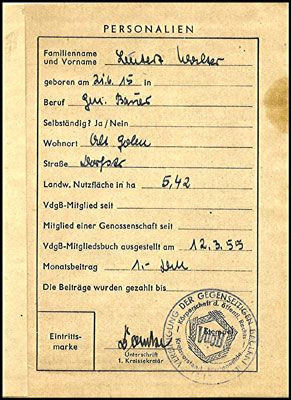 PERSONALIEN
Familienname
und Vorname Walter
geboren am 21.6.15 in
Beruf Gen. Bauer
Selbständig? Ja / Nein
Wohnort Alt Golm
Straße Dorfstr
Landw. Nutzfläche in ha 5,42
VdgB-Mitglied seit
Mitglied einer Genossenschaft seit
VdgB-Mitgliedsbuch ausgestellt am 12.3.59
Monatsbeitrag 1.-
Die Beiträge wurden gezahlt bis
VEREINIGUNG DER GEGENSEITIGEN
Körperschaft d. öffentl. Rechts
VdgB
Eintritts-
marke
Unterschrift
1. Kreissekretär